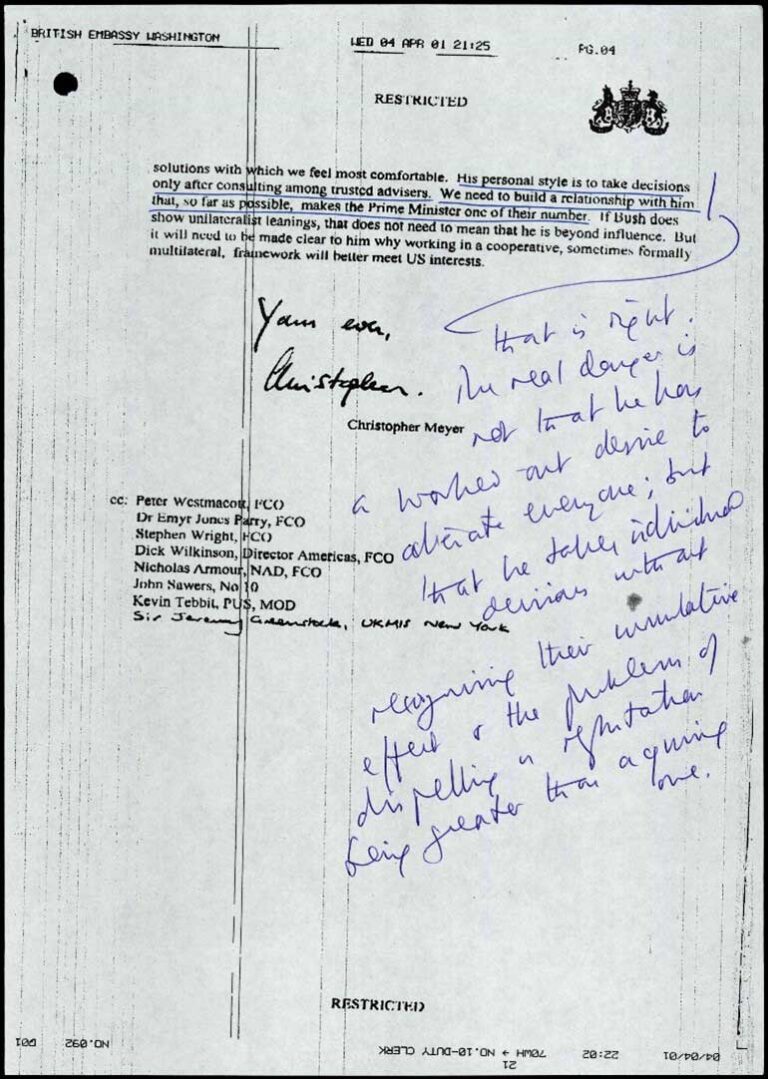 BRITISH EMBASSY WASHINGTON
WED 04 APR 01 21:25
PG.04
RESTRICTED
solutions with which we feel most comfortable. His personal style is to take decisions
only after consulting among trusted advisers. We need to build a relationship with him
that, so far as possible, makes the Prime Minister one of their number. If Bush does
show unilateralist leanings, that does not need to mean that he is beyond influence. But
it will need to be made clear to him why working in a cooperative, sometimes formally
multilateral, framework will better meet US interests.
Yours ever,
Christopher.
Christopher Meyer
that is right.
The real danger is
not that he has
a worked-out desire to
alienate everyone; but
that he takes individual
decisions without
recognising their cumulative
effect & the problem of
dispelling a reputation
being greater than acquiring
one.
cc: Peter Westmacott, FCO
Dr Emyr Jones Parry, FCO
Stephen Wright, FCO
Dick Wilkinson, Director Americas, FCO
Nicholas Armour, NAD, FCO
John Sawers, No 10
Kevin Tebbit, PUS, MOD
Sir Jeremy Greenstock, UKMIS New York
RESTRICTED
04/04/01 22:02 70WH → NO.10-DUTY CLERK NO.092 D01
21